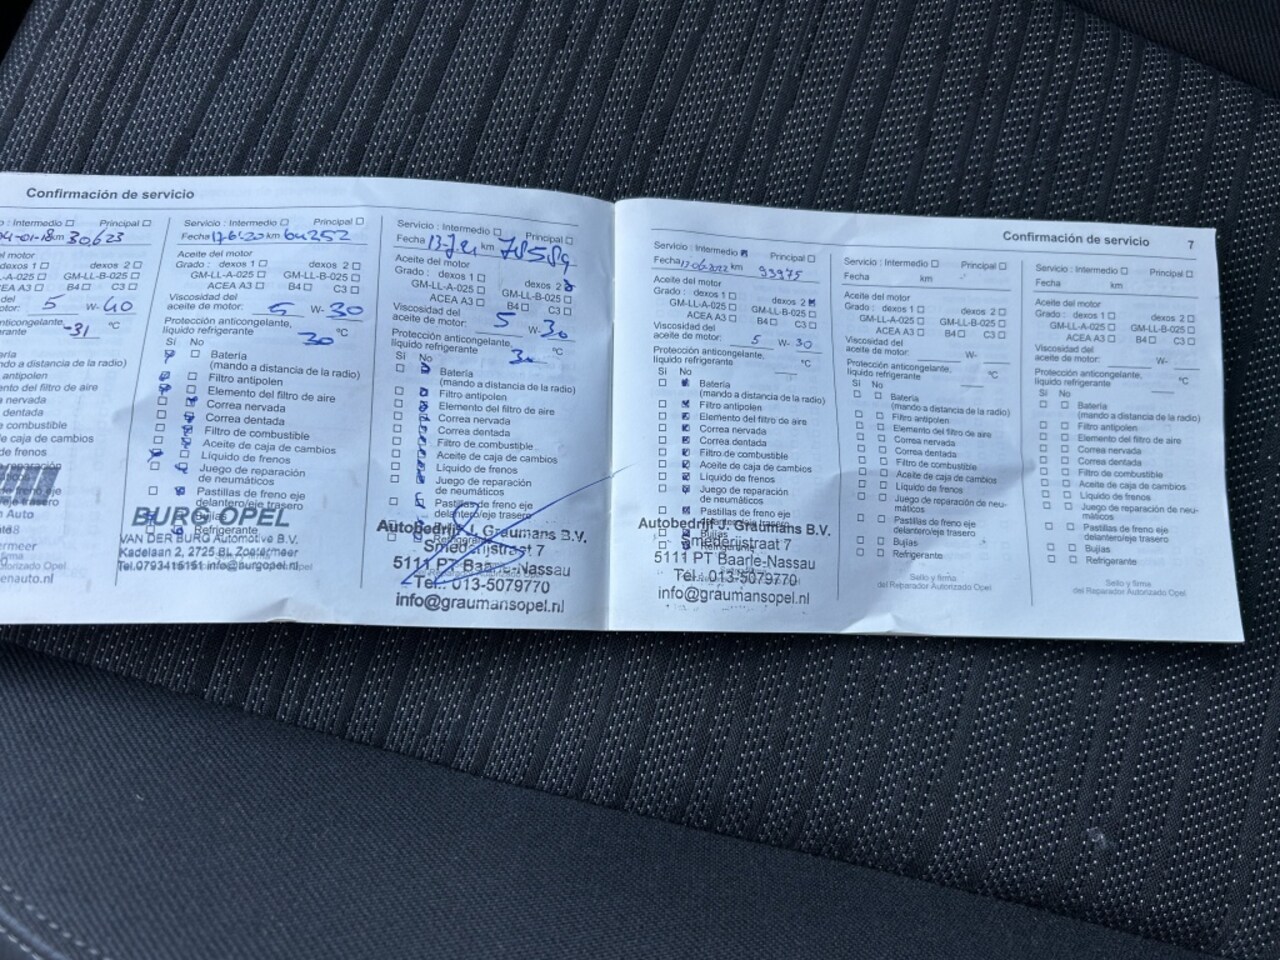 Confirmación de servicio
o : Intermedio Principal
04-01-18 km 30623
el motor
dexos 1 dexos 2
-A-025 GM-LL-B-025
CEA A3 B4 C3
del
otor: 5 W- 40
anticongelante,
-31 °C
ndo a distancia de la radio)
antipolen
ento del filtro de aire
a nervada
dentada
e combustible
e caja de cambios
de frenos
enauto.nl
Servicio : Intermedio Principal
Fecha 17-6-20 km 64252
Aceite del motor
Grado : dexos 1 dexos 2
GM-LL-A-025 GM-LL-B-025
ACEA A3 B4 C3
Viscosidad del
aceite de motor: 5 W- 30
Protección anticongelante,
líquido refrigerante
30 °C
Sí No
Batería
(mando a distancia de la radio)
Filtro antipolen
Elemento del filtro de aire
Correa nervada
Correa dentada
Filtro de combustible
Aceite de caja de cambios
Líquido de frenos
Juego de reparación
de neumáticos
Pastillas de freno eje
delantero/eje trasero
Bujías
Refrigerante
BURG OPEL
VAN DER BURG Automotive B.V.
Kadelaan 2, 2725 BL Zoetermeer
Tel.0793416151 info@burgopel.nl
Servicio : Intermedio Principal
Fecha 13-7-21 km 78589
Aceite del motor
Grado : dexos 1 dexos 2
GM-LL-A-025 GM-LL-B-025
ACEA A3 B4 C3
Viscosidad del
aceite de motor: 5 W- 30
Protección anticongelante,
líquido refrigerante
30 °C
Sí No
Batería
(mando a distancia de la radio)
Filtro antipolen
Elemento del filtro de aire
Correa nervada
Correa dentada
Filtro de combustible
Aceite de caja de cambios
Líquido de frenos
Juego de reparación
de neumáticos
Pastillas de freno eje
delantero/eje trasero
Autobedrijf J. Graumans B.V.
Smederijstraat 7
5111 PT Baarle-Nassau
Tel.: 013-5079770
info@graumansopel.nl
Confirmación de servicio 7
Servicio : Intermedio Principal
Fecha 17-06-2022 km 93975
Aceite del motor
Grado : dexos 1 dexos 2
GM-LL-A-025 GM-LL-B-025
ACEA A3 B4 C3
Viscosidad del
aceite de motor: 5 W- 30
Protección anticongelante,
líquido refrigerante °C
Sí No
Batería
(mando a distancia de la radio)
Filtro antipolen
Elemento del filtro de aire
Correa nervada
Correa dentada
Filtro de combustible
Aceite de caja de cambios
Líquido de frenos
Juego de reparación
de neumáticos
Pastillas de freno eje
delantero/eje trasero
Bujías
Autobedrijf J. Graumans B.V.
Smederijstraat 7
5111 PT Baarle-Nassau
Tel.: 013-5079770
info@graumansopel.nl
Servicio : Intermedio Principal
Fecha km
Aceite del motor
Grado : dexos 1 dexos 2
GM-LL-A-025 GM-LL-B-025
ACEA A3 B4 C3
Viscosidad del
aceite de motor: W-
Protección anticongelante,
líquido refrigerante °C
Sí No
Batería
(mando a distancia de la radio)
Filtro antipolen
Elemento del filtro de aire
Correa nervada
Correa dentada
Filtro de combustible
Aceite de caja de cambios
Líquido de frenos
Juego de reparación de neu-
máticos
Pastillas de freno eje
delantero/eje trasero
Bujías
Refrigerante
Sello y firma
del Reparador Autorizado Opel
Servicio : Intermedio Principal
Fecha km
Aceite del motor
Grado : dexos 1 dexos 2
GM-LL-A-025 GM-LL-B-025
ACEA A3 B4 C3
Viscosidad del
aceite de motor: W-
Protección anticongelante,
líquido refrigerante °C
Sí No
Batería
(mando a distancia de la radio)
Filtro antipolen
Elemento del filtro de aire
Correa nervada
Correa dentada
Filtro de combustible
Aceite de caja de cambios
Líquido de frenos
Juego de reparación de neu-
máticos
Pastillas de freno eje
delantero/eje trasero
Bujías
Refrigerante
Sello y firma
del Reparador Autorizado Opel